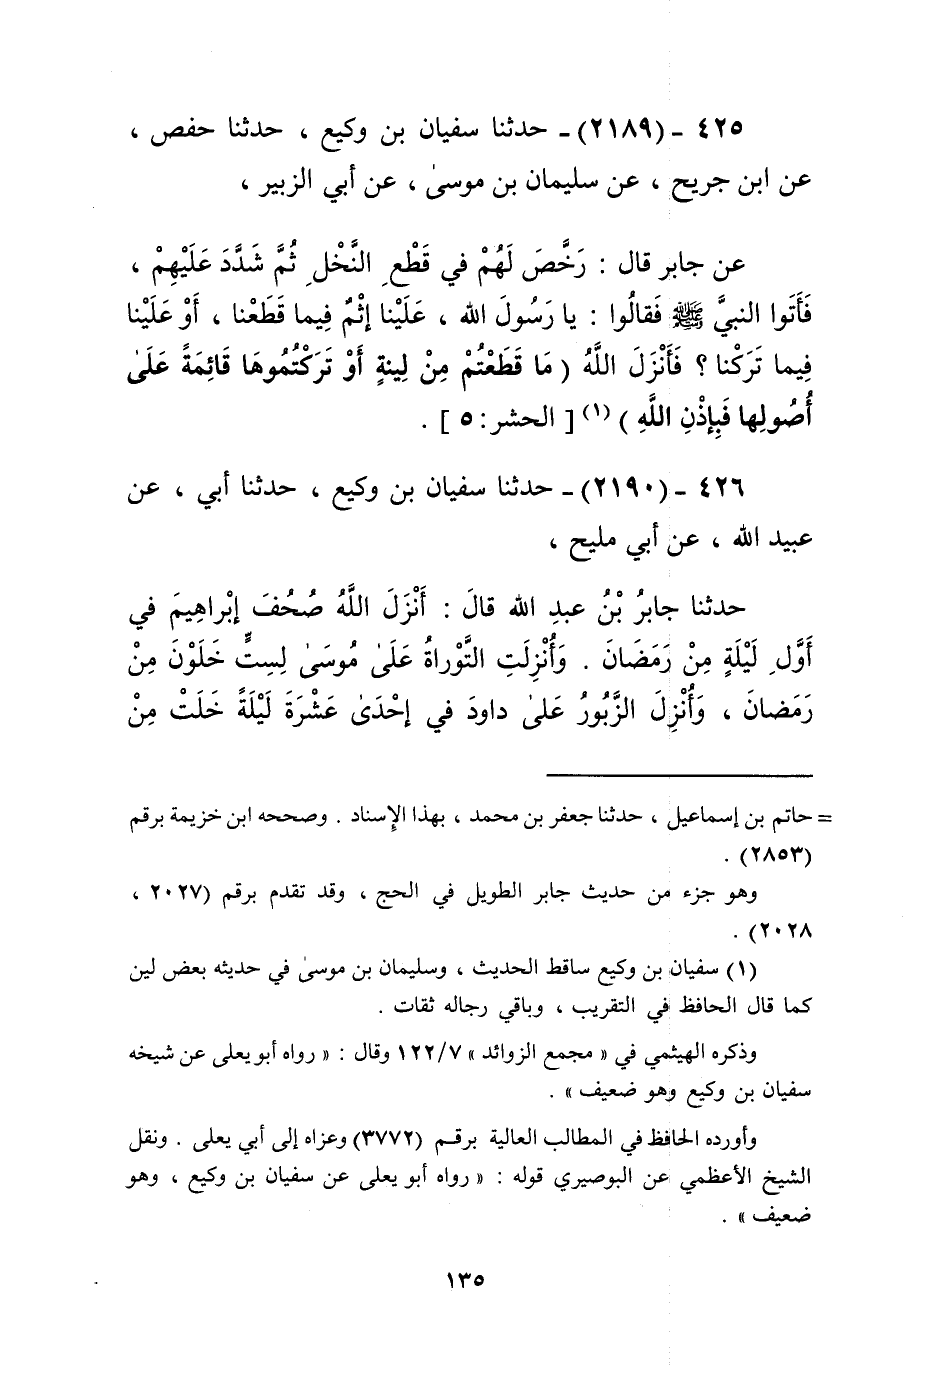 ٤٢٥ ـ (٢١٨٩) ـ حدثنا سفيان بن وكيع ، حدثنا حفص ،
عن ابن جريح ، عن سليمان بن موسىٰ ، عن أبي الزبير ،
عن جابر قال : رَخَّصَ لَهُمْ في قَطْعِ النَّخْلِ ثُمَّ شَدَّدَ عَلَيْهِمْ ،
فَأَتَوا النبيَّ ﷺ فَقالُوا : يا رَسُولَ الله ، عَلَيْنا إثْمٌ فِيما قَطَعْنا ، أَوْ عَلَيْنا
فِيما تَرَكْنا ؟ فَأَنْزَلَ اللَّهُ ( مَا قَطَعْتُمْ مِنْ لِينةٍ أَوْ تَرَكْتُموهَا قَائِمَةً عَلَىٰ
أُصُولِها فَبِإذْنِ اللَّهِ ) (١) [ الحشر : ٥ ] .
٤٢٦ ـ (٢١٩٠) ـ حدثنا سفيان بن وكيع ، حدثنا أبي ، عن
عبيد الله ، عن أبي مليح ،
حدثنا جابرُ بْنُ عبدِ الله قالَ : أَنْزَلَ اللَّهُ صُحُفَ إبْراهِيمَ في
أَوَّلِ لَيْلَةٍ مِنْ رَمَضَانَ . وَأُنْزِلَتِ التَّوْراةُ عَلَىٰ مُوسَىٰ لِسِتٍّ خَلَوْنَ مِنْ
رَمَضانَ ، وَأُنْزِلَ الزَّبُورُ عَلىٰ داودَ في إحْدَىٰ عَشْرَةَ لَيْلَةً خَلَتْ مِنْ
= حاتم بن إسماعيل ، حدثنا جعفر بن محمد ، بهذا الإِسناد . وصححه ابن خزيمة برقم
(٢٨٥٣) .
وهو جزء من حديث جابر الطويل في الحج ، وقد تقدم برقم (٢٠٢٧ ،
٢٠٢٨) .
(١) سفيان بن وكيع ساقط الحديث ، وسليمان بن موسىٰ في حديثه بعض لين
كما قال الحافظ في التقريب ، وباقي رجاله ثقات .
وذكره الهيثمي في « مجمع الزوائد » ١٢٢/٧ وقال : « رواه أبو يعلى عن شيخه
سفيان بن وكيع وهو ضعيف » .
وأورده الحافظ في المطالب العالية برقم (٣٧٧٢) وعزاه إلى أبي يعلى . ونقل
الشيخ الأعظمي عن البوصيري قوله : « رواه أبو يعلى عن سفيان بن وكيع ، وهو
ضعيف » .
١٣٥